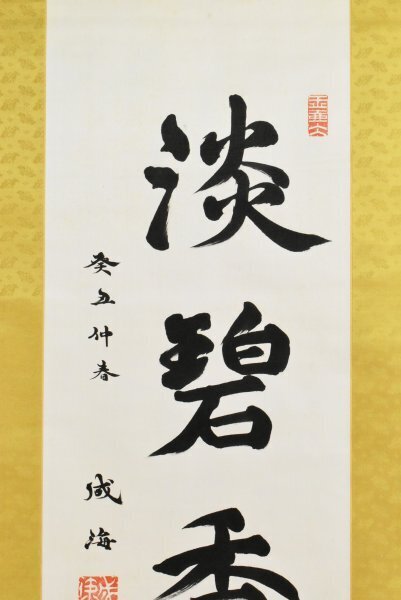 淡碧香
癸丑仲春
成海